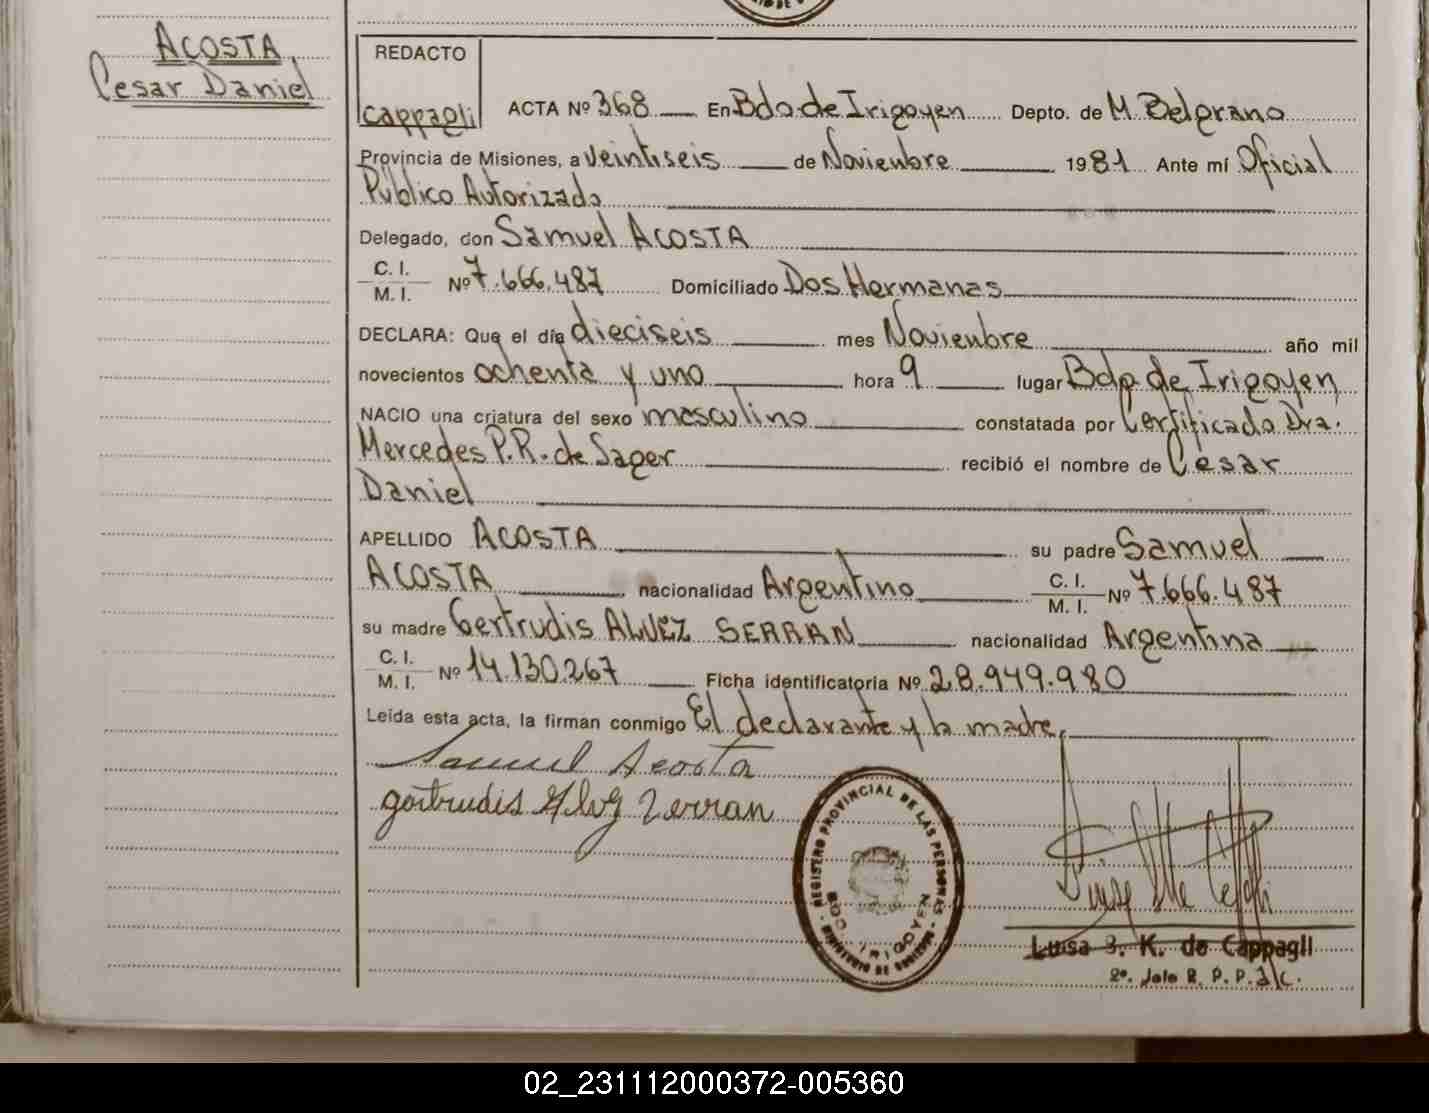 ACOSTA
Cesar Daniel
REDACTO
Cappagli
ACTA Nº 368 En Bdo de Irigoyen Depto. de M. Belgrano
Provincia de Misiones, a veintiseis de Noviembre 1981 Ante mí Oficial
Público Autorizado
Delegado, don Samuel ACOSTA
C. I.
M. I. Nº 7.666.487 Domiciliado Dos Hermanas
DECLARA: Que el día dieciseis mes Noviembre año mil
novecientos ochenta y uno hora 9 lugar Bdo de Irigoyen
NACIO una criatura del sexo masculino constatada por Certificado Dra.
Mercedes P.R. de Sager recibió el nombre de Cesar
Daniel
APELLIDO ACOSTA su padre Samuel
ACOSTA nacionalidad Argentino C. I. M. I. Nº 7.666.487
su madre Gertrudis ALVEZ SERRAN nacionalidad Argentina
C. I.
M. I. Nº 14.130.267 Ficha identificatoria Nº 28.949.980
Leída esta acta, la firman conmigo El declarante y la madre,
Samuel Acosta
gertrudis Alvez Zerran
REGISTRO PROVINCIAL DE LAS PERSONAS
BDO. IRIGOYEN
MINISTERIO DE GOBIERNO
Luisa K. de Cappagli
2º. Jefe R. P. P. a/c.
02_231112000372-005360